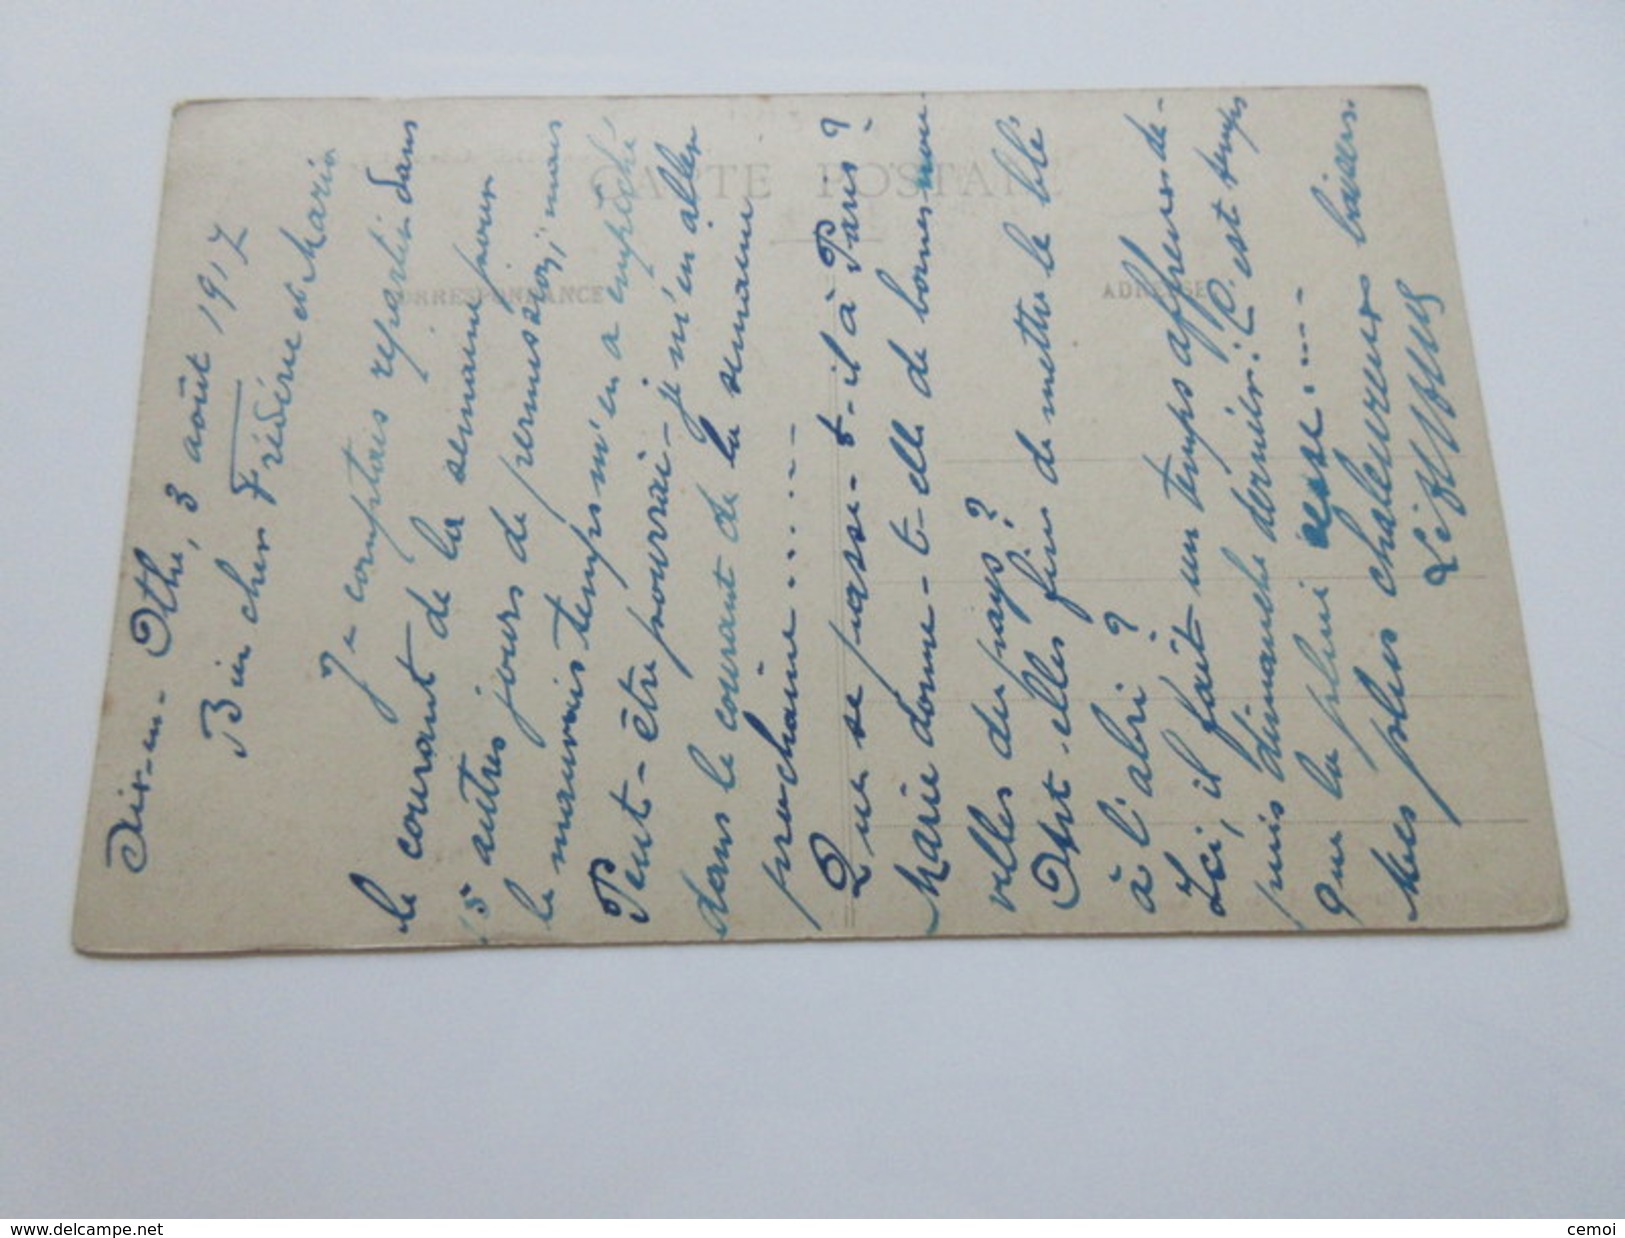 CARTE POSTALE
CORRESPONDANCE
ADRESSE
Aix-en-Othe, 3 août 1917
Bien cher Frédéric et Maria
Je comptais repartir dans
le courant de la semaine pour
15 autres jours de permission; mais
le mauvais temps m'en a empêché
Peut-être pourrai-je m'en aller
dans le courant de la semaine
prochaine.....---
Que se passe-t-il à Paris?
Marie donne-t-elle de bonnes nou-
velles du pays?
Ont-elles fini de mettre le blé
à l'abri?
Ici, il fait un temps affreux de-
puis dimanche dernier: C'est temps
que la pluie cesse...---
Mes plus chaleureux baisers
www.delcampe.net
cemoi